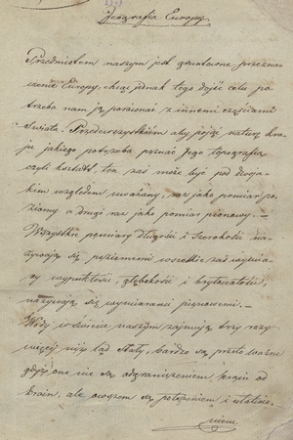 Jeografia Europy.
Przedmiotem naszym jest gruntowne poznanie
Europy, chcąc jednak tego dojść celu po-
trzeba nam ją porównać z innemi częściami
Świata. Przedewszystkiem aby pojąć naturę kra-
ju jakiego potrzeba poznać Jego topografią
czyli kształt, ten zaś może być pod dwoja-
kim względem uważany, raz jako pomiar po-
ziomy a drugi raz jako pomiar pionowy.—
Wszystkie pomiary długości i szerokości na-
zywają się poziomemi wszelkie zaś wymia-
ry wypukłości, głębokości i
nazywają się wymiarami pionowemi.—
Wody w świecie naszym zajmują trzy razy
więcej niż ląd stały, bardzo są przeto ważne
gdyż one nie są odgraniczeniem krajów od
krain, ale owszem są połączeniem i